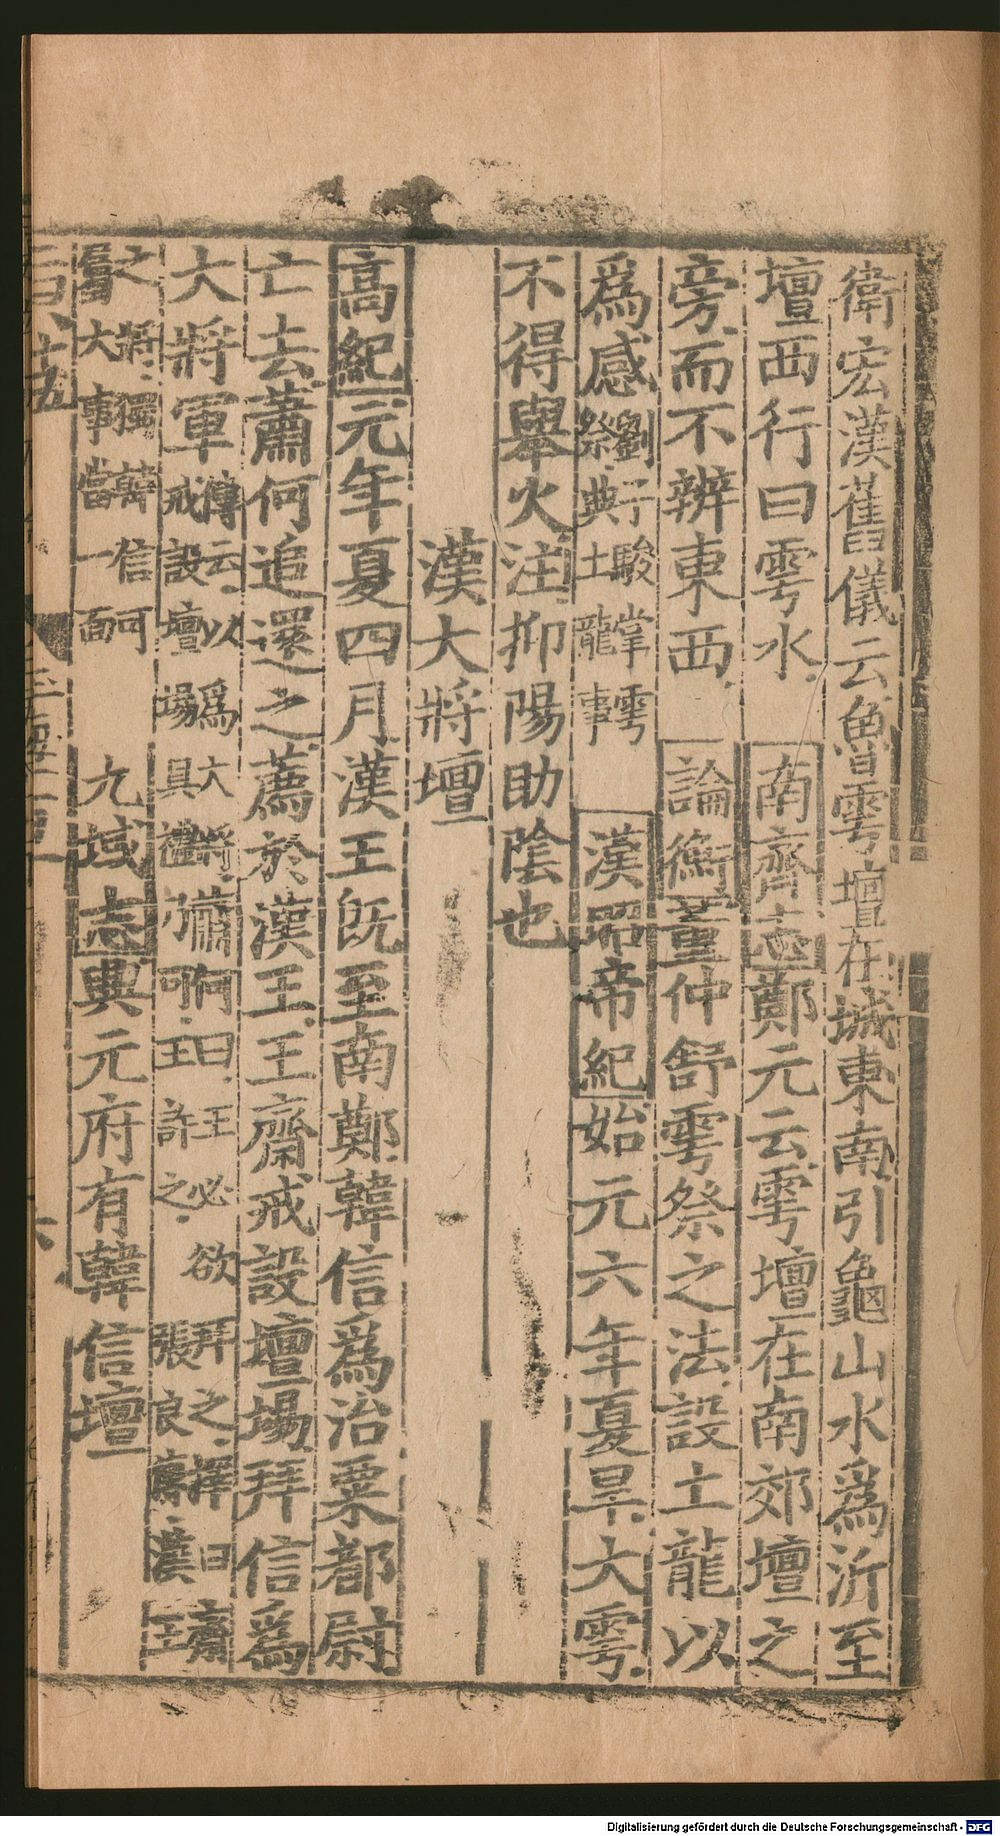 衛宏漢舊儀云魯雩壇在城東南引龜山水爲沂至
壇西行曰雩水南齊志鄭元云雩壇在南郊壇之
旁而不辨東西論衡董仲舒雩祭之法設土龍以
爲感劉子駿掌雩祭典土龍事漢昭帝紀始元六年夏旱大雩
不得舉火注抑陽助陰也
漢大將壇
高紀元年夏四月漢王旣至南鄭韓信爲治粟都尉
亡去蕭何追還之薦於漢王王齋戒設壇場拜信爲
大將軍傳云以爲大將蕭何曰王必欲拜之擇日齋戒設壇場具禮乃可王許之張良傳漢王
之將獨韓信可屬大事當一面九域志興元府有韓信壇
Digitalisierung gefördert durch die Deutsche Forschungsgemeinschaft - DFG